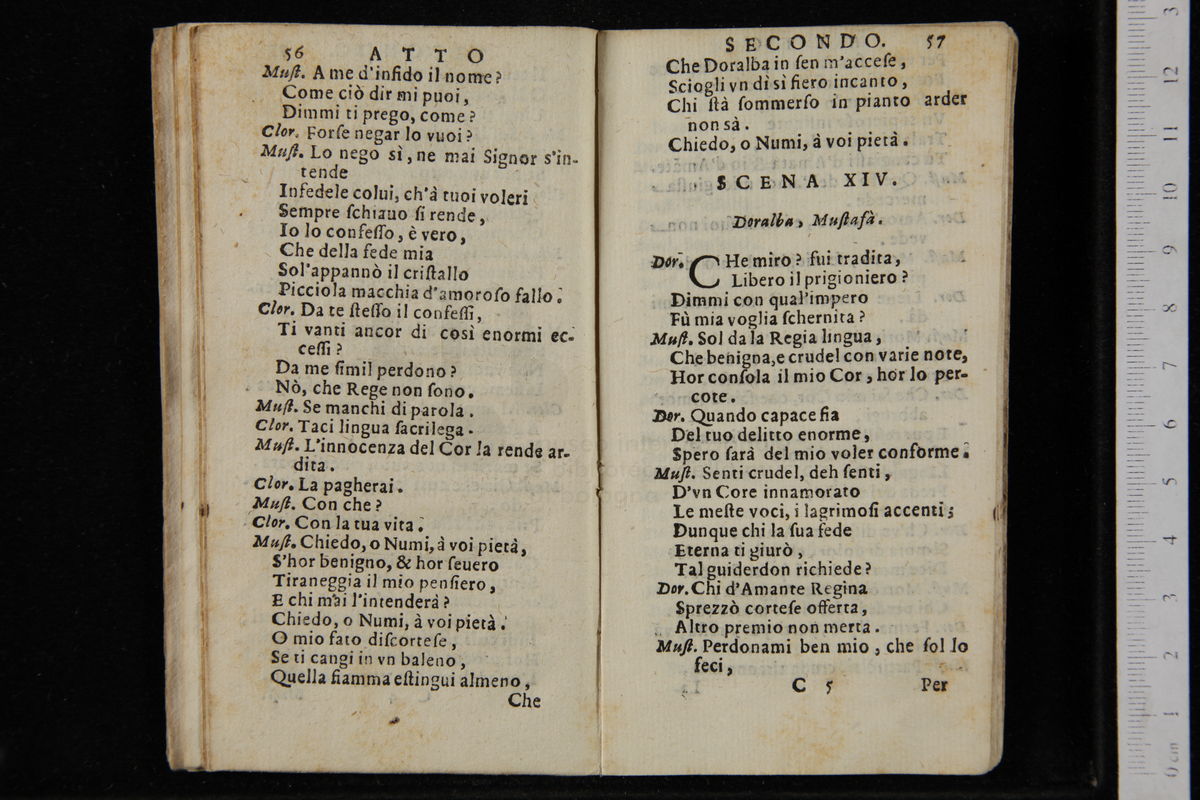 56 ATTO
Muſt. A me d'infido il nome?
Come ciò dir mi puoi,
Dimmi ti prego, come?
Clor. Forſe negar lo vuoi?
Muſt. Lo nego sì, ne mai Signor s'in-
tende
Infedele colui, ch'à tuoi voleri
Sempre ſchiauo ſi rende,
Io lo confeſſo, è vero,
Che della fede mia
Sol'appannò il criſtallo
Picciola macchia d'amoroſo fallo.
Clor. Da te ſteſſo il confeſſi,
Ti vanti ancor di così enormi ec-
ceſſi?
Da me ſimil perdono?
Nò, che Rege non ſono.
Muſt. Se manchi di parola.
Clor. Taci lingua ſacrilega.
Muſt. L'innocenza del Cor la rende ar-
dita.
Clor. La pagherai.
Muſt. Con che?
Clor. Con la tua vita.
Muſt. Chiedo, o Numi, à voi pietà,
S'hor benigno, & hor ſeuero
Tiraneggia il mio penſiero,
E chi mai l'intenderà?
Chiedo, o Numi, à voi pietà.
O mio fato diſcorteſe,
Se ti cangi in vn baleno,
Quella fiamma eſtingui almeno,
Che
SECONDO. 57
Che Doralba in ſen m'acceſe,
Sciogli vn dì sì fiero incanto,
Chi ſtà ſommerſo in pianto arder
non sà.
Chiedo, o Numi, à voi pietà.
SCENA XIV.
Doralba, Muſtafà.
Dor. CHe miro? fui tradita,
Libero il prigioniero?
Dimmi con qual'impero
Fù mia voglia ſchernita?
Muſt. Sol da la Regia lingua,
Che benigna, e crudel con varie note,
Hor conſola il mio Cor, hor lo per-
cote.
Dor. Quando capace fia
Del tuo delitto enorme,
Spero ſarà del mio voler conforme.
Muſt. Senti crudel, deh ſenti,
D'vn Core innamorato
Le meſte voci, i lagrimoſi accenti;
Dunque chi la ſua fede
Eterna ti giurò,
Tal guiderdon richiede?
Dor. Chi d'Amante Regina
Sprezzò corteſe offerta,
Altro premio non merta.
Muſt. Perdonami ben mio, che ſol lo
feci,
C 5 Per